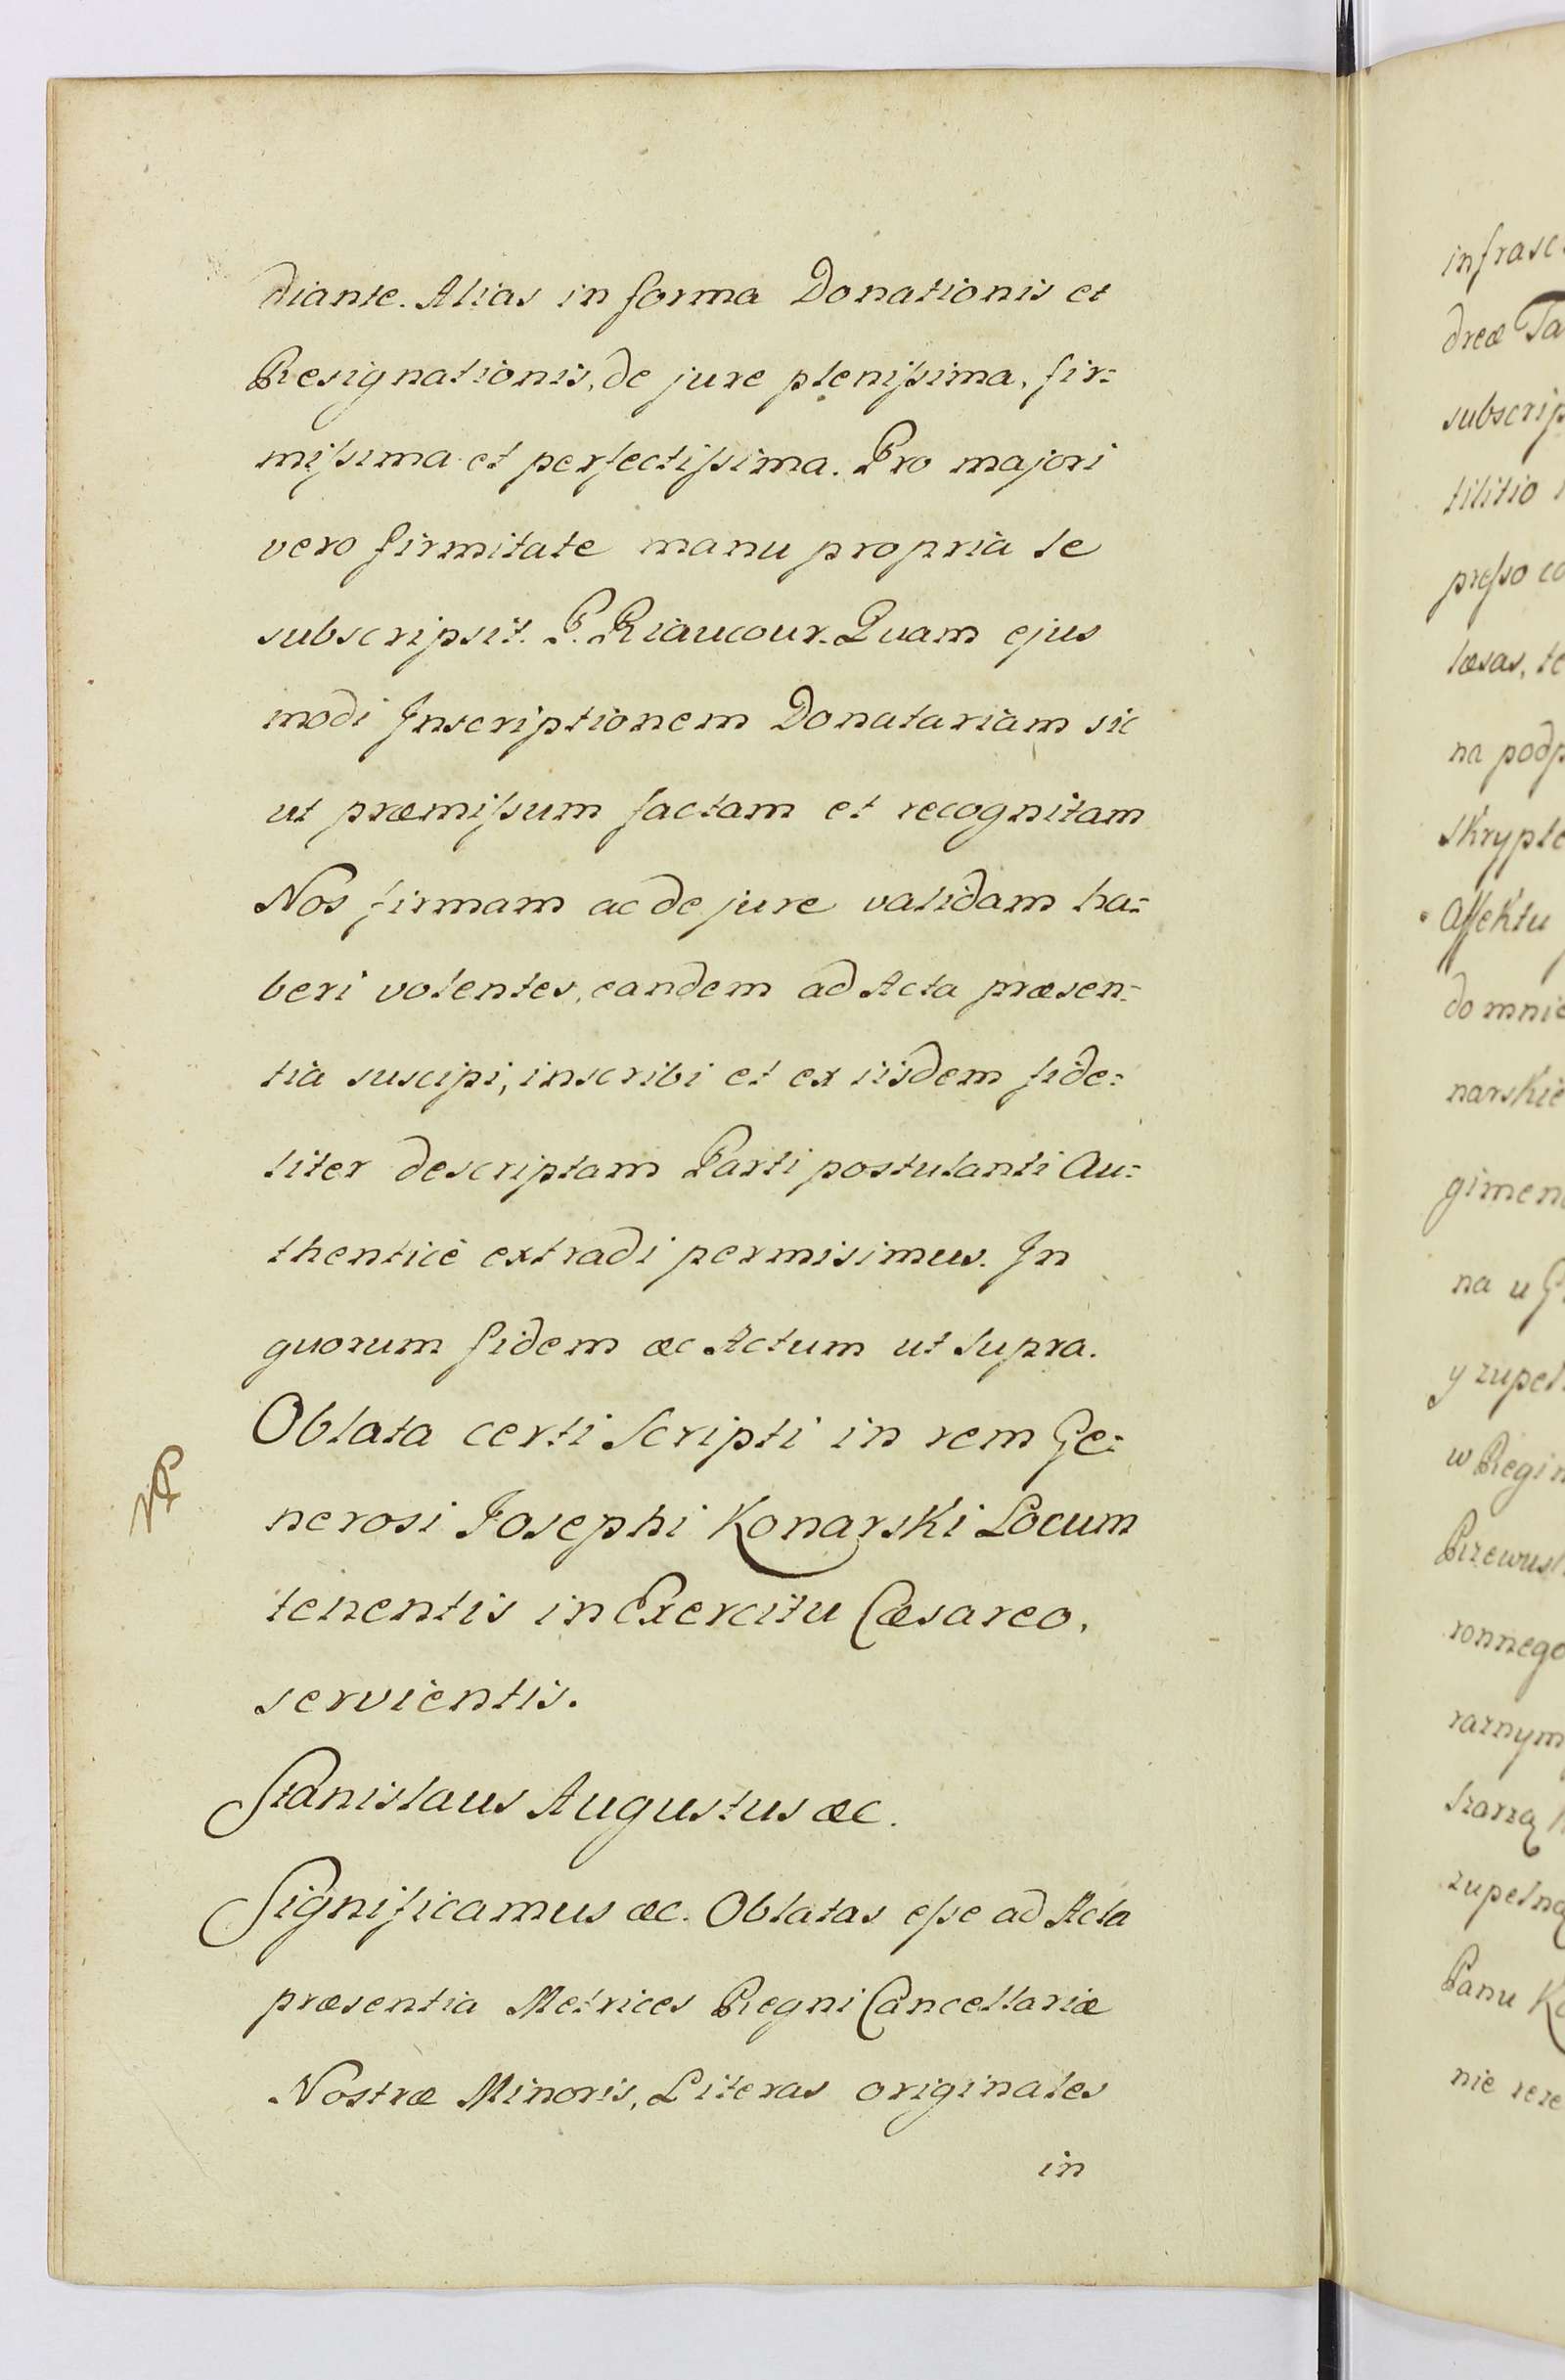 diante. Alias in forma Donationis et
Resignationis, de jure plenissima, fir=
missima et perfectissima. Pro majori
vero firmitate manu propria se
subscripsit. P. Riaucour. Quam ejus
modi Inscriptionem Donatariam sic
ut præmissum factam et recognitam
Nos firmam ac de jure validam ha=
beri volentes, eandem ad Acta præsen=
tia suscipi, inscribi et ex iisdem fide=
liter descriptam Parti postulanti Au=
thenticè extradi permisimus. In
quorum fidem æc Actum ut supra.
Oblata certi Scripti in rem Ge=
nerosi Josephi Konarski Locum
tenentis in Exercitu Cæsareo,
servientis.
Stanislaus Augustus æc.
Significamus æc. Oblatas esse ad Acta
præsentia Metrices Regni Cancellariæ
Nostræ Minoris, Literas originales
in
infrasc
dreæ Ta
subscrip
tilitio
presso co
læsas, te
na podp
skrypte
Affektu
do mnie
narskie
gimen
na u G
y zupeł
w Regim
Rzewus
ronnego
raznym
Szarzą
zupełną
Panu Ko
nie reze